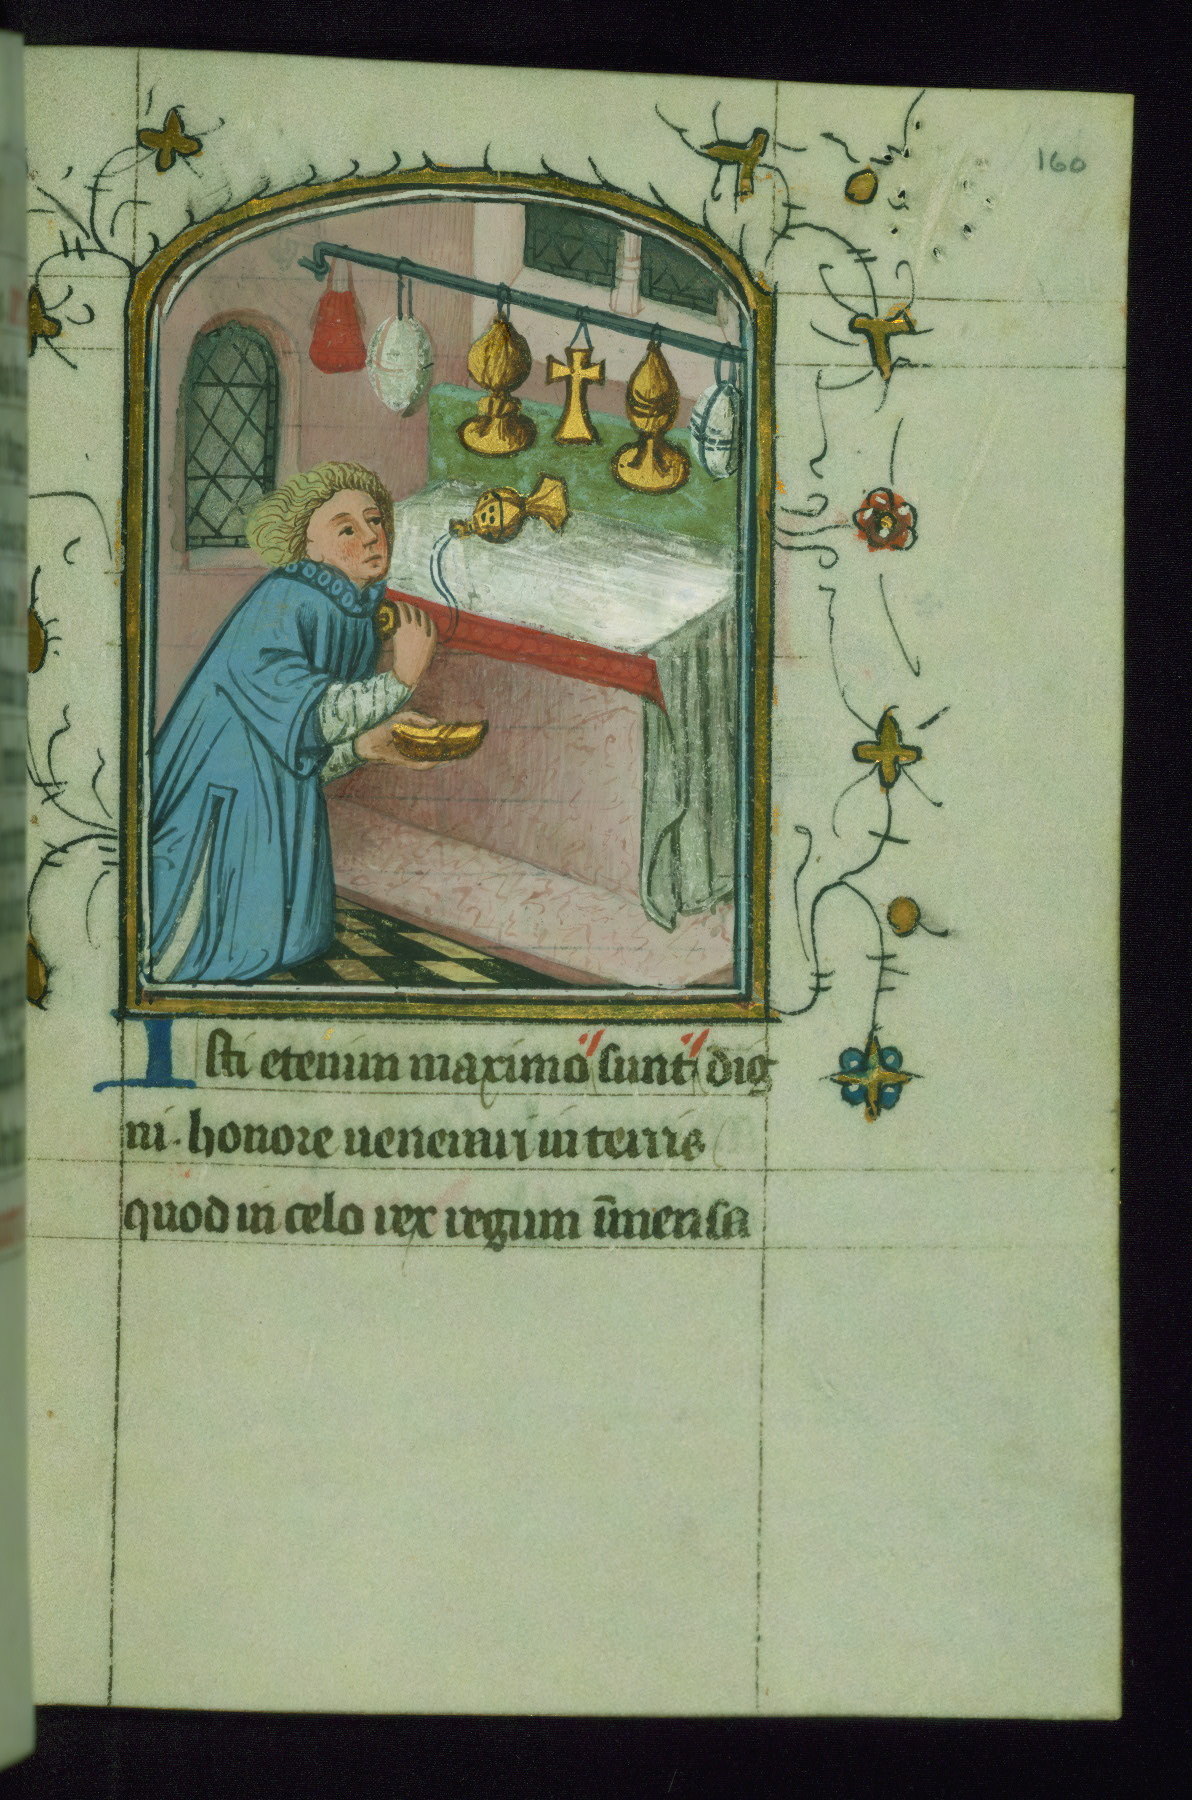 160
Isti etenim maximo sunt dig
ni. honore uenerari in terris
quod in celo rex regum īmensa